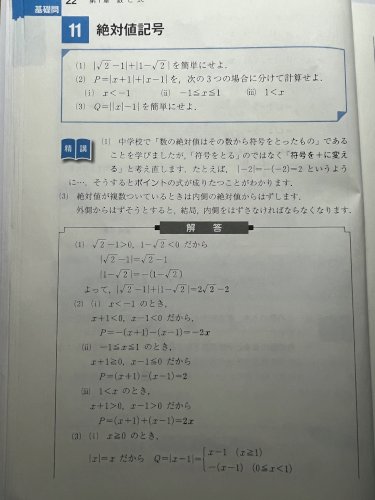 基礎問
22 第1章 数と式
11 絶対値記号
(1) |√2−1|+|1−√2|を簡単にせよ.
(2) P=|x+1|+|x−1|を, 次の3つの場合に分けて計算せよ.
(i) x<−1 (ii) −1≦x≦1 (iii) 1<x
(3) Q=||x|−1|を簡単にせよ.
精講
(1) 中学校で「数の絶対値はその数から符号をとったもの」である
ことを学びましたが,「符号をとる」のではなく「符号を+に変え
る」と考え直します. たとえば, |−2|=−(−2)=2 というよう
に…. そうするとポイントの式が成りたつことがわかります.
(3) 絶対値が複数ついているときは内側の絶対値からはずします.
外側からはずそうとすると, 結局, 内側をはずさなければならなくなります.
解答
(1) √2−1>0, 1−√2<0 だから
|√2−1|=√2−1
|1−√2|=−(1−√2)
よって, |√2−1|+|1−√2|=2√2−2
(2) (i) x<−1 のとき,
x+1<0, x−1<0 だから,
P=−(x+1)−(x−1)=−2x
(ii) −1≦x≦1 のとき,
x+1≧0, x−1≦0 だから,
P=(x+1)−(x−1)=2
(iii) 1<x のとき,
x+1>0, x−1>0 だから
P=(x+1)+(x−1)=2x
(3) (i) x≧0 のとき,
|x|=x だから Q=|x−1|={x−1 (x≧1)
−(x−1) (0≦x<1)